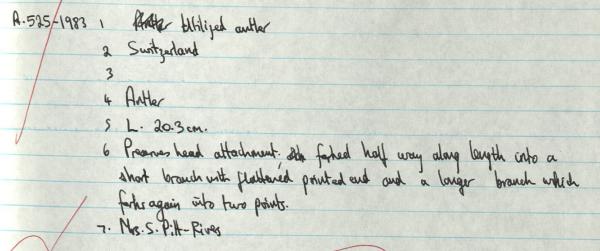 A.525-1983 1 Utilized antler
2 Switzerland
3
4 Antler
5 L. 20.3cm.
6 Preserves head attachment; forked half way along length into a
short branch with flattened pointed end and a longer branch which
forks again into two points.
7. Mrs. S. Pitt-Rivers